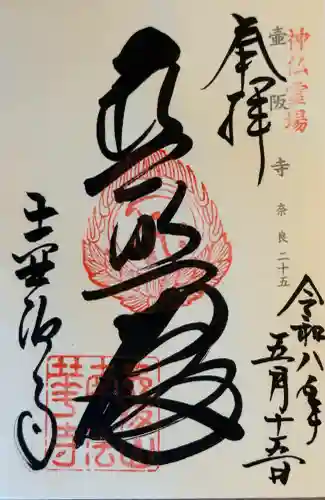 神仏霊場
壷阪寺 奈良二十五
奉拝
令和八年
五月十五日
普照殿
壷阪寺